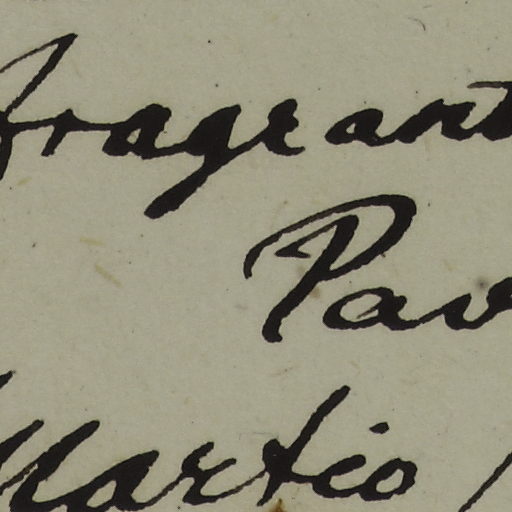 fragrant
Pav
Martio